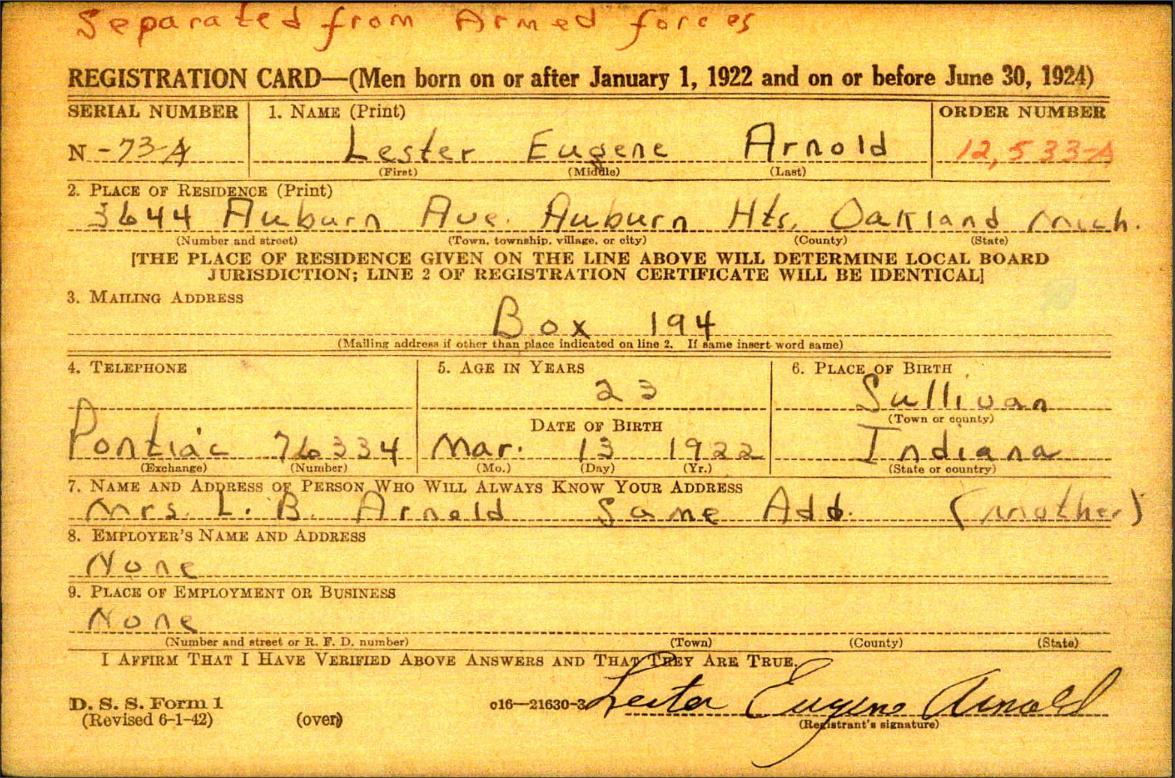 Separated from Armed forces
REGISTRATION CARD—(Men born on or after January 1, 1922 and on or before June 30, 1924)
SERIAL NUMBER
1. NAME (Print)
ORDER NUMBER
N -73-A
Lester Eugene Arnold
12,533-A
(First) (Middle) (Last)
2. PLACE OF RESIDENCE (Print)
3644 Auburn Ave. Auburn Hts. Oakland Mich.
(Number and street) (Town, township, village, or city) (County) (State)
[THE PLACE OF RESIDENCE GIVEN ON THE LINE ABOVE WILL DETERMINE LOCAL BOARD
JURISDICTION; LINE 2 OF REGISTRATION CERTIFICATE WILL BE IDENTICAL]
3. MAILING ADDRESS
Box 194
(Mailing address if other than place indicated on line 2. If same insert word same)
4. TELEPHONE
5. AGE IN YEARS
6. PLACE OF BIRTH
23
Sullivan
(Town or county)
DATE OF BIRTH
Pontiac 76334
Mar. 13 1922
Indiana
(Exchange) (Number)
(Mo.) (Day) (Yr.)
(State or country)
7. NAME AND ADDRESS OF PERSON WHO WILL ALWAYS KNOW YOUR ADDRESS
Mrs. L. B. Arnold Same Add. (Mother)
8. EMPLOYER'S NAME AND ADDRESS
None
9. PLACE OF EMPLOYMENT OR BUSINESS
None
(Number and street or R. F. D. number) (Town) (County) (State)
I AFFIRM THAT I HAVE VERIFIED ABOVE ANSWERS AND THAT THEY ARE TRUE.
D. S. S. Form 1
(Revised 6-1-42) (over)
c16—21630-3
Lester Eugene Arnold
(Registrant's signature)